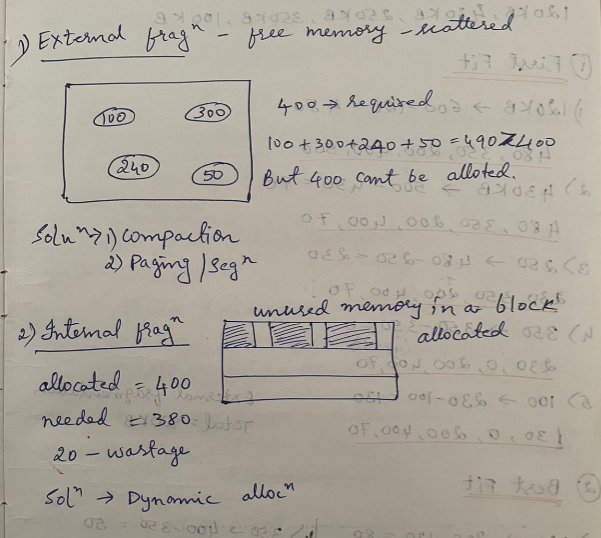 1) External fragⁿ - free memory - scattered
100 300
240 50
400 → required
100+300+240+50 = 490 > 400
But 400 cant be alloted.
Soluⁿ → 1) Compaction
2) Paging / Segⁿ
2) Internal fragⁿ
unused memory in a block
allocated
allocated = 400
needed = 380
20 - wastage
Solⁿ → Dynamic allocⁿ